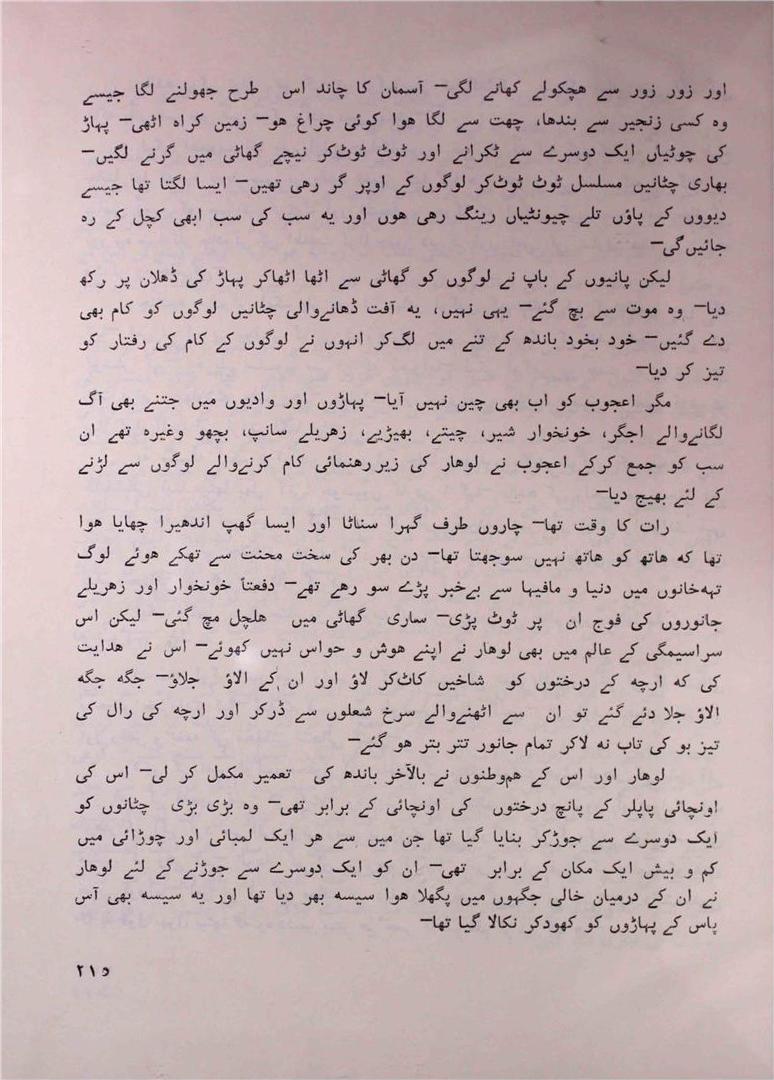 اور زور زور سے هچکولے کھانے لگی— آسمان کا چاند اس طرح جھولنے لگا جیسے
وہ کسی زنجیر سے بندھا، چھت سے لگا هوا کوئی چراغ هو— زمین کراہ اٹھی— پہاڑ
کی چوٹیاں ایک دوسرے سے ٹکرانے اور ٹوٹ ٹوٹ‌کر نیچے گھاٹی میں گرنے لگیں—
بھاری چٹانیں مسلسل ٹوٹ ٹوٹ‌کر لوگوں کے اوپر گر رهی تھیں— ایسا لگتا تھا جیسے
دیووں کے پاؤں تلے چیونٹیاں رینگ رهی هوں اور یه سب کی سب ابھی کچل کے رہ
جائیں‌گی—
لیکن پانیوں کے باپ نے لوگوں کو گھاٹی سے اٹھا اٹھاکر پہاڑ کی ڈھلان پر رکھ
دیا— وہ موت سے بچ گئے— یہی نہیں، یه آفت ڈھانےوالی چٹانیں لوگوں کو کام بھی
دے گئیں— خود بخود باندھ کے تنے میں لگ‌کر انہوں نے لوگوں کے کام کی رفتار کو
تیز کر دیا—
مگر اعجوب کو اب بھی چین نہیں آیا— پہاڑوں اور وادیوں میں جتنے بھی آگ
لگانےوالے اجگر، خونخوار شیر، چیتے، بھیڑیے، زهریلے سانپ، بچھو وغیرہ تھے ان
سب کو جمع کرکے اعجوب نے لوهار کی زیر رهنمائی کام کرنےوالے لوگوں سے لڑنے
کے لئے بھیج دیا—
رات کا وقت تھا— چاروں طرف گہرا سناٹا اور ایسا گھپ اندھیرا چھایا هوا
تھا که هاتھ کو هاتھ نہیں سوجھتا تھا— دن بھر کی سخت محنت سے تھکے هوئے لوگ
تہہ‌خانوں میں دنیا و مافیہا سے بےخبر پڑے سو رهے تھے— دفعتاً خونخوار اور زهریلے
جانوروں کی فوج ان پر ٹوٹ پڑی— ساری گھاٹی میں هلچل مچ گئی— لیکن اس
سراسیمگی کے عالم میں بھی لوهار نے اپنے هوش و حواس نہیں کھوئے— اس نے هدایت
کی که ارچه کے درختوں کو شاخیں کاٹ‌کر لاؤ اور ان کے الاؤ جلاؤ— جگه جگه
الاؤ جلا دئے گئے تو ان سے اٹھنےوالے سرخ شعلوں سے ڈرکر اور ارچه کی رال کی
تیز بو کی تاب نه لاکر تمام جانور تتر بتر هو گئے—
لوهار اور اس کے هم‌وطنوں نے بالآخر باندھ کی تعمیر مکمل کر لی— اس کی
اونچائی پاپلر کے پانچ درختوں کی اونچائی کے برابر تھی— وہ بڑی بڑی چٹانوں کو
ایک دوسرے سے جوڑکر بنایا گیا تھا جن میں سے هر ایک لمبائی اور چوڑائی میں
کم و بیش ایک مکان کے برابر تھی— ان کو ایک دوسرے سے جوڑنے کے لئے لوهار
نے ان کے درمیان خالی جگہوں میں پگھلا هوا سیسه بھر دیا تھا اور یه سیسه بھی آس
پاس کے پہاڑوں کو کھودکر نکالا گیا تھا—
۲۱۵